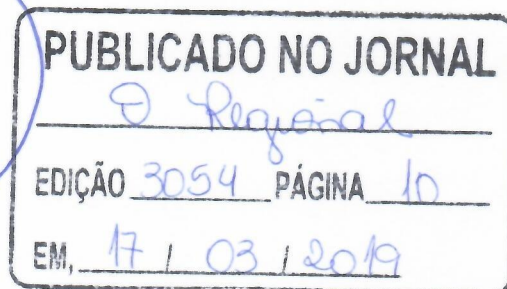 PUBLICADO NO JORNAL
O Regional
EDIÇÃO 3054 PÁGINA 10
EM, 17 / 03 / 2019